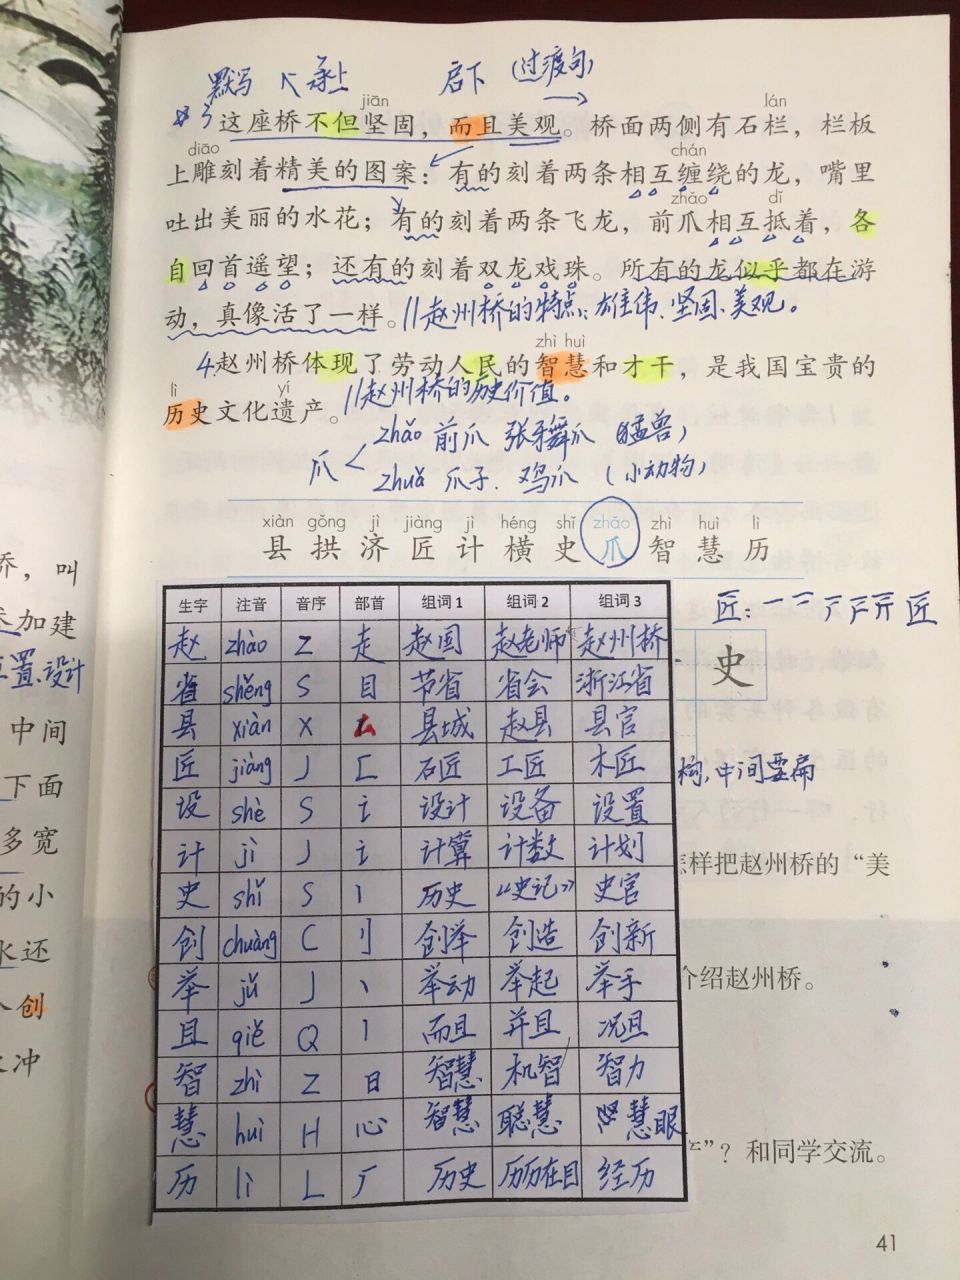 默写 承上 启下 (过渡句)
jiān lán
3 这座桥不但坚固，而且美观。桥面两侧有石栏，栏板
diāo chán
上雕刻着精美的图案：有的刻着两条相互缠绕的龙，嘴里
zhǎo dǐ
吐出美丽的水花；有的刻着两条飞龙，前爪相互抵着，各
自回首遥望；还有的刻着双龙戏珠。所有的龙似乎都在游
动，真像活了一样。//赵州桥的特点：雄伟、坚固、美观。
zhì huì
4.赵州桥体现了劳动人民的智慧和才干，是我国宝贵的
lì yí
历史文化遗产。//赵州桥的历史价值。
爪 < zhǎo 前爪 张牙舞爪 (猛兽)
zhuǎ 爪子、鸡爪 (小动物)
xiàn gǒng jì jiàng jì héng shǐ zhǎo zhì huì lì
县 拱 济 匠 计 横 史 爪 智 慧 历
匠：一 匠
史
生字 注音 音序 部首 组词1 组词2 组词3
赵 zhào Z 走 赵国 赵老师 赵州桥
省 shěng S 目 节省 省会 浙江省
县 xiàn X 厶 县城 赵县 县官
匠 jiàng J 匚 石匠 工匠 木匠
设 shè S 讠 设计 设备 设置
计 jì J 讠 计算 计数 计划
史 shǐ S 丨 历史 《史记》 史官
创 chuàng C 刂 创举 创造 创新
举 jǔ J 丶 举动 举起 举手
且 qiě Q 丨 而且 并且 况且
智 zhì Z 日 智慧 机智 智力
慧 huì H 心 智慧 聪慧 慧眼
历 lì L 厂 历史 历历在目 经历
构，中间要扁
怎样把赵州桥的“美
介绍赵州桥。
”？和同学交流。
桥，叫
参加建
设计
中间
下面
多宽
的小
水还
个创
冲
41